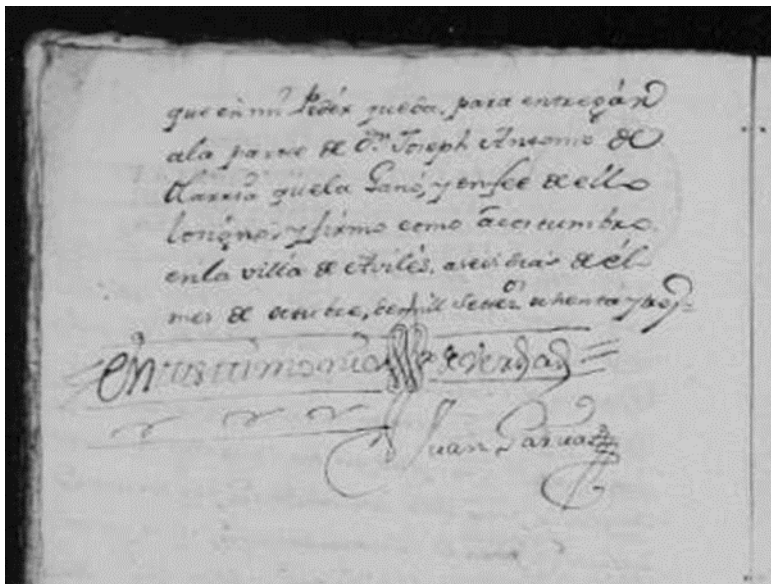 que en mi Poder queda, para entregár
ala parte de Dn. Joseph Antonio de
quela Ganó, y enfee de éllo
losigno, y firmo como acostumbro,
enla villa de Avilés, aseis dias de él
mes de octubre, demill Setezos. ochenta y dos,=
En testimonio de verdad
Juan